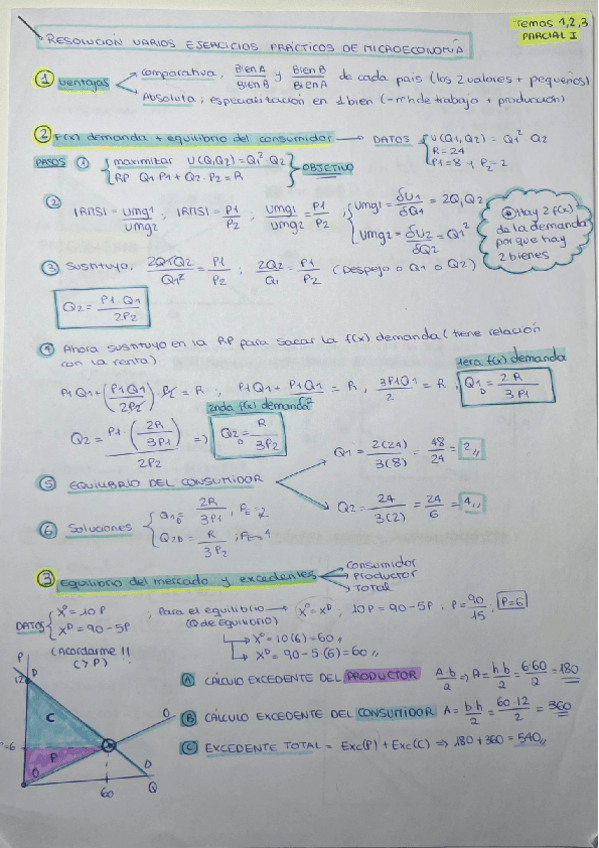 Temas 1,2,3
PARCIAL I
RESOLUCIÓN VARIOS EJERCICIOS PRÁCTICOS DE MICROECONOMÍA
1 Ventajas
Comparativa, Bien A/Bien B y Bien B/Bien A de cada país (los 2 valores + pequeños)
Absoluta; especialización en 1 bien (-nº h de trabajo + producción)
2 F(x) demanda + equilibrio del consumidor → DATOS { U(Q1,Q2) = Q1² Q2
R = 24
P1 = 8 y P2 = 2
PASOS 1 { maximizar U(Q1Q2) = Q1² · Q2
RP Q1 P1 + Q2 · P2 = R } OBJETIVO
2 IRMSI = Umg1/Umg2 ; IRMSI = P1/P2 ; Umg1/Umg2 = P1/P2 ; { Umg1 = δU1/δQ1 = 2Q1Q2
Umg2 = δU2/δQ2 = Q1²
Hay 2 f(x)
de la demanda
porque hay
2 bienes
3 Sustituyo, 2Q1Q2/Q1² = P1/P2 ; 2Q2/Q1 = P1/P2 (Despejo o Q1 o Q2)
Q2 = P1 · Q1/2P2
4 Ahora sustituyo en la RP para sacar la f(x) demanda (tiene relación
con la renta)
1era f(x) demanda
P1 Q1 + (P1 Q1/2P2) · P2 = R ; P1 Q1 + P1 Q1/2 = R , 3P1Q1/2 = R , Q1D = 2R/3P1
2nda f(x) demanda
Q2 = P1 · (2R/3P1)/2P2 => Q2D = R/3P2
5 EQUILIBRIO DEL CONSUMIDOR
Q1 = 2(24)/3(8) = 48/24 = 2,,
Q2 = 24/3(2) = 24/6 = 4,,
6 Soluciones { Q1D = 2R/3P1 , PE = 2
Q2D = R/3P2 ; PE = 4
3 Equilibrio del mercado y excedentes
Consumidor
Productor
Total
DATOS { X⁰ = 10P
Xᴰ = 90 - 5P
(Acordarme !!
(> P)
; Para el equilibrio → X⁰ = Xᴰ , 10P = 90 - 5P , P = 90/15 , P = 6
(Q de equilibrio)
X⁰ = 10(6) = 60,,
Xᴰ = 90 - 5(6) = 60,,
A CÁLCULO EXCEDENTE DEL PRODUCTOR A·b/2 => A = h b/2 = 6·60/2 = 180
B CÁLCULO EXCEDENTE DEL CONSUMIDOR A = b h/2 = 60·12/2 = 360
C EXCEDENTE TOTAL = Exc(P) + Exc(C) => 180 + 360 = 540,,
P
D
12
C
O
=6
P
O
D
60
Q